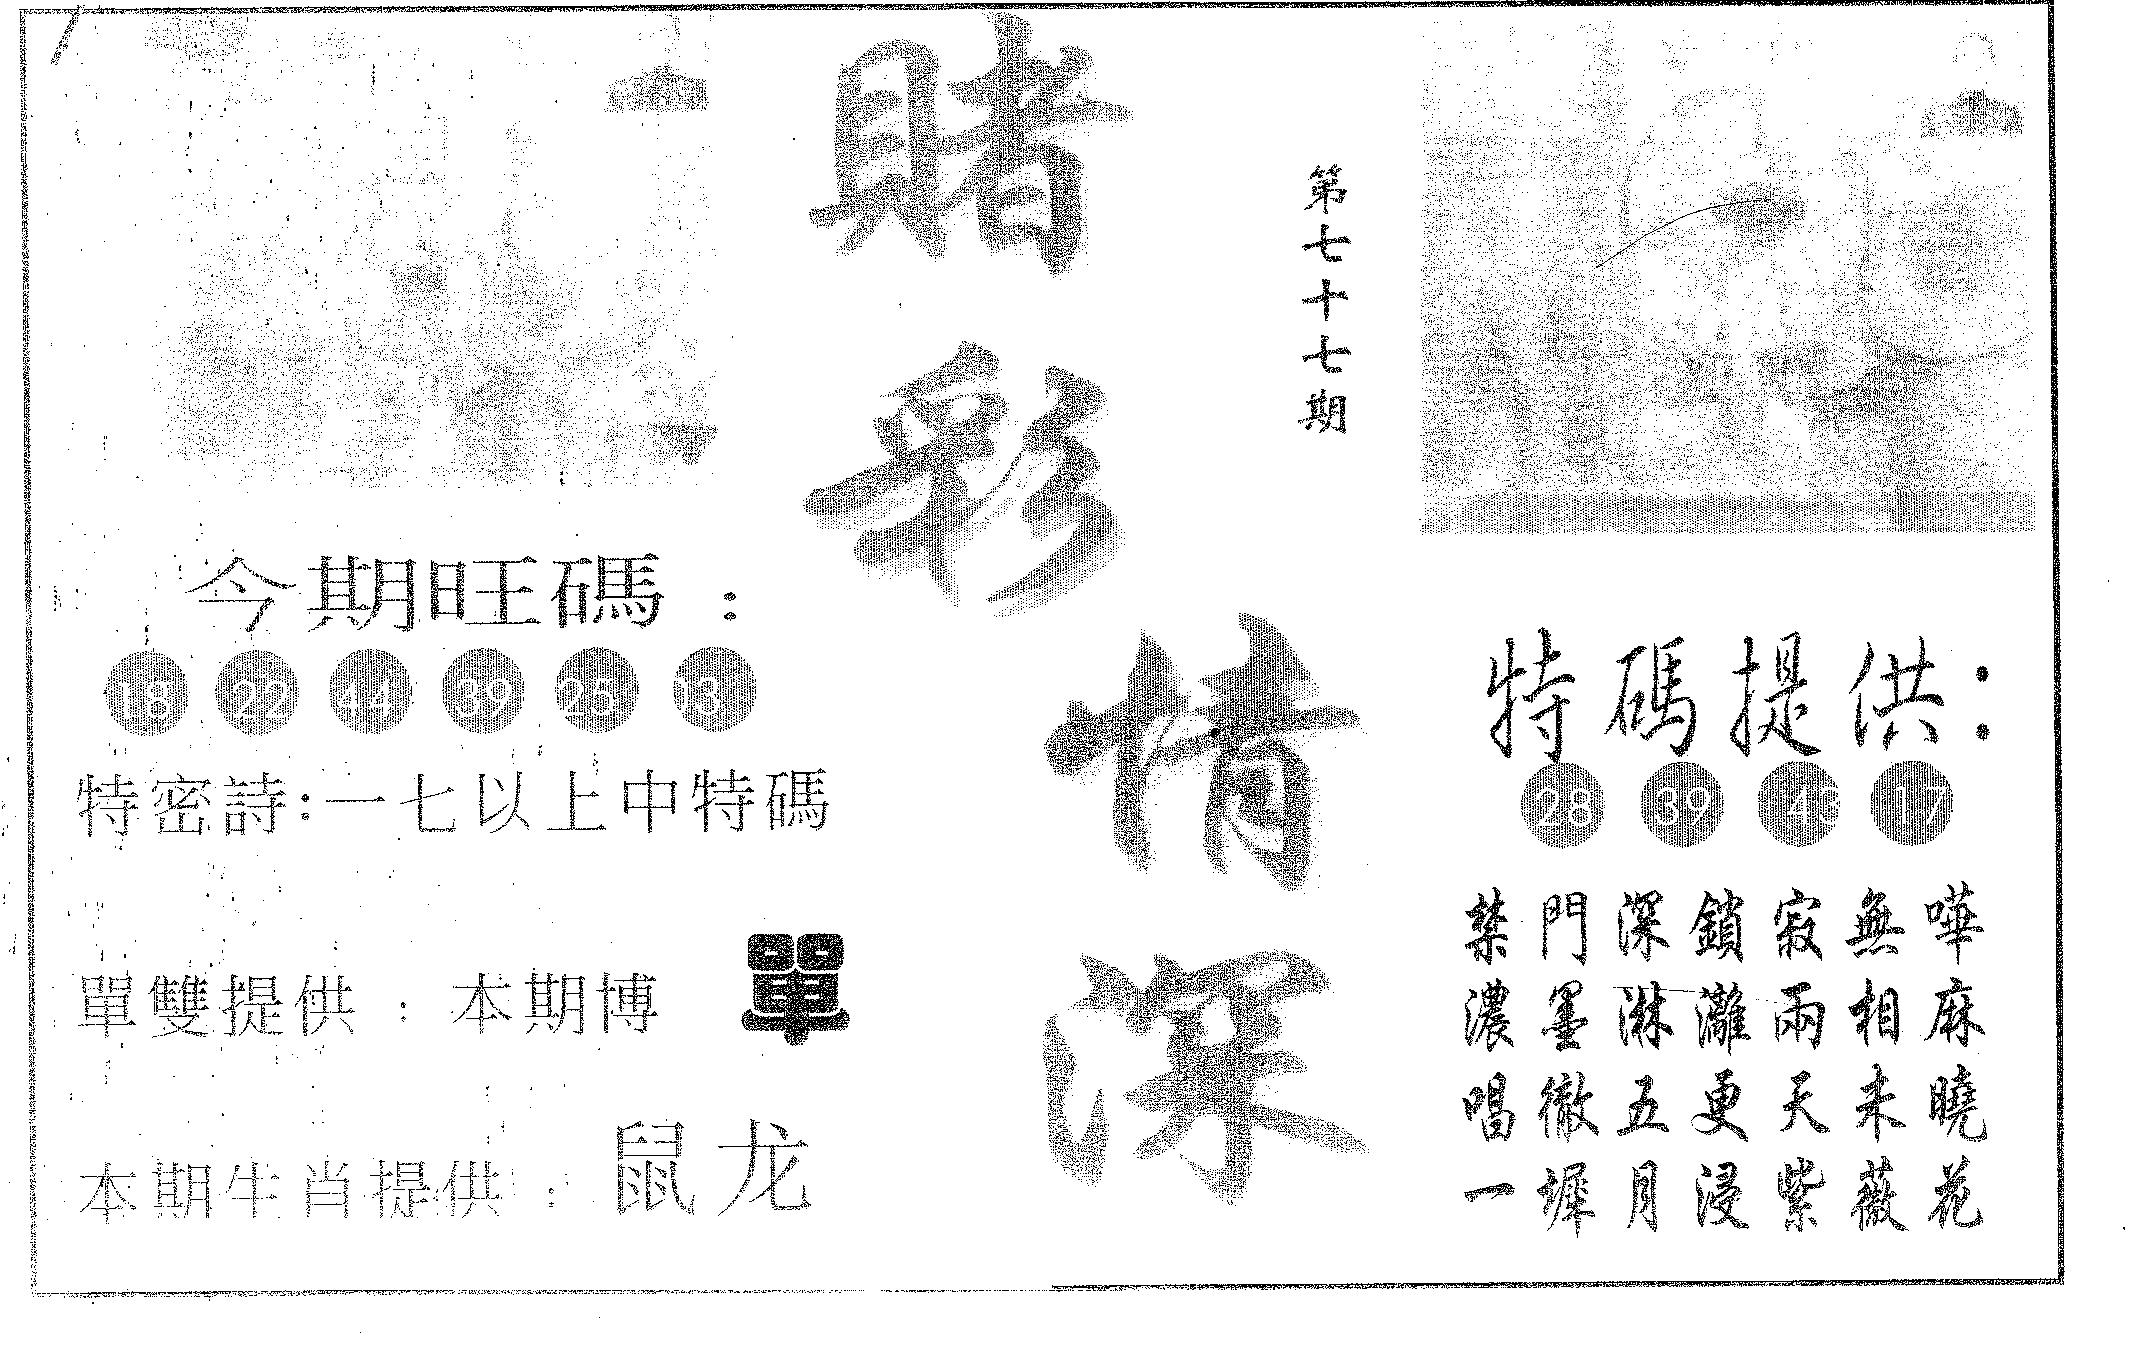 賭彩情深
第七十七期
今期旺碼：
18 22 44 39 25 03
特密詩：一七以上中特碼
單雙提供：本期博 單
本期生肖提供：鼠龙
特碼提供：
28 39 43 17
禁門深鎖寂無嘩
濃墨淋灕兩相麻
唱徹五更天未曉
一墀月浸紫薇花